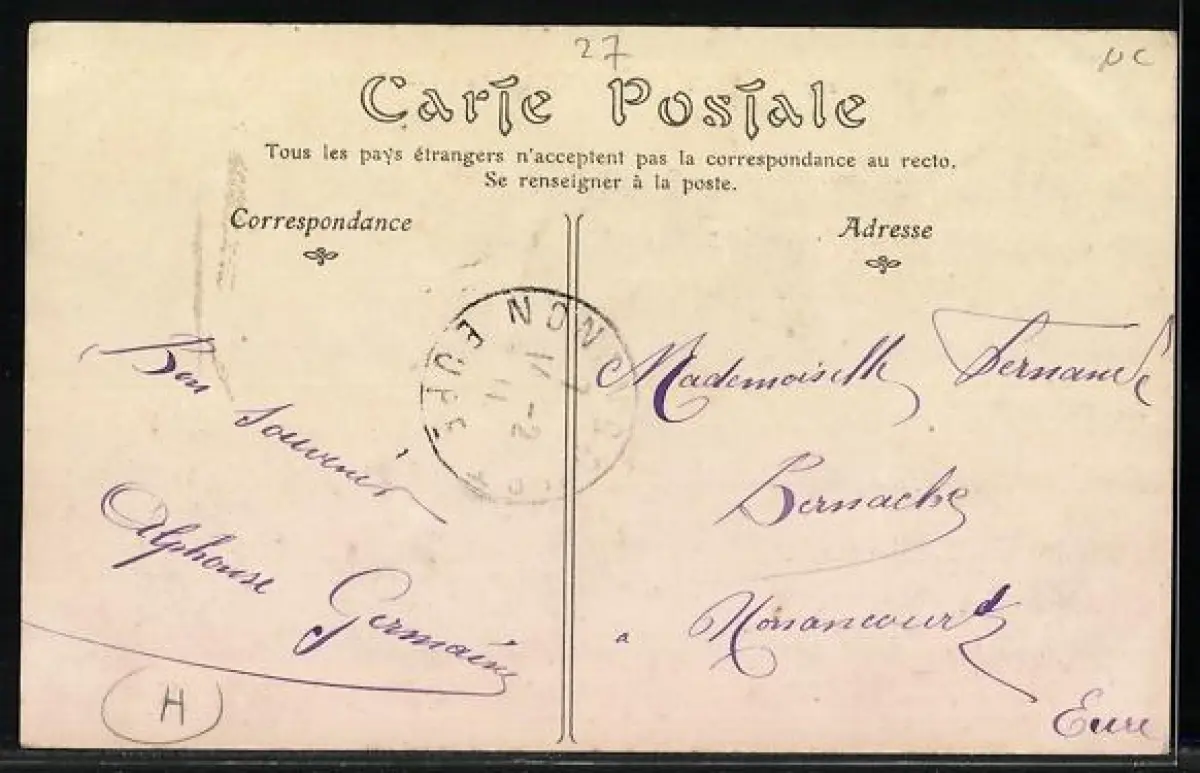 27
NC
Carte Postale
Tous les pays étrangers n'acceptent pas la correspondance au recto.
Se renseigner à la poste.
Correspondance
Adresse
NONANCOURT
EURE
-2
11
Bon Souvenir
Alphonse Germain
H
Mademoiselle Fernande
Bernache
a Nonancourt
Eure